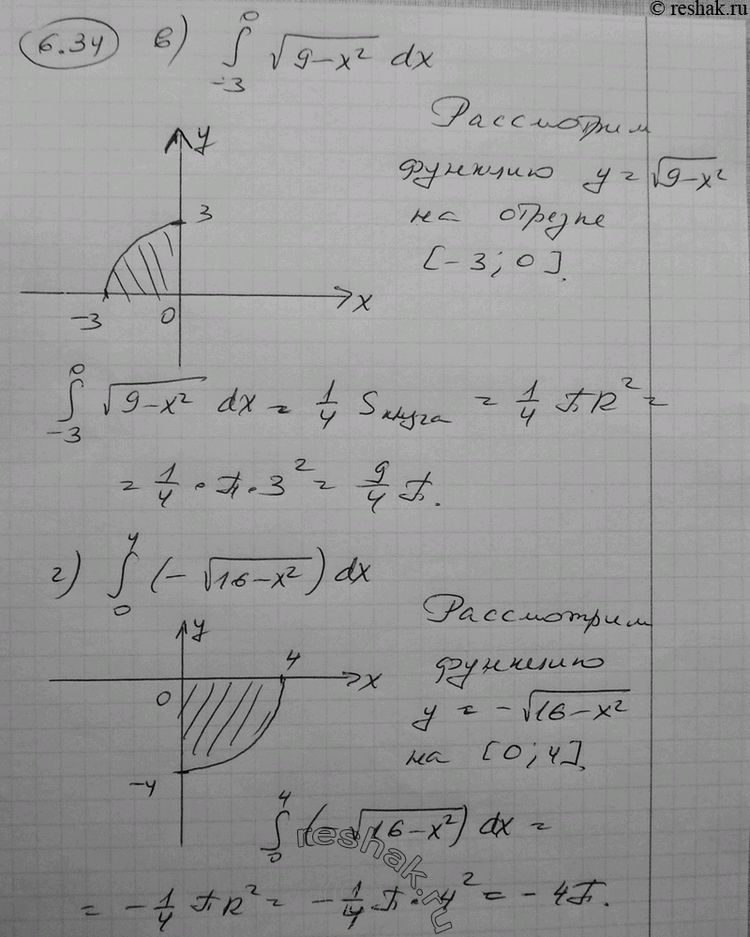 © reshak.ru
6.34 в) ∫₋₃⁰ √(9-x²) dx
Рассмотрим
функцию y = √(9-x²)
на отрезке
[-3; 0].
y
3
-3 0 x
∫₋₃⁰ √(9-x²) dx = 1/4 Sкруга = 1/4 πR² =
= 1/4 · π · 3² = 9/4 π.
г) ∫₀⁴ (-√(16-x²)) dx
Рассмотрим
функцию
y = -√(16-x²)
на [0; 4].
y
0 4 x
-4
∫₀⁴ (-√(16-x²)) dx =
reshak.ru
= -1/4 πR² = -1/4 π · 4² = -4π.